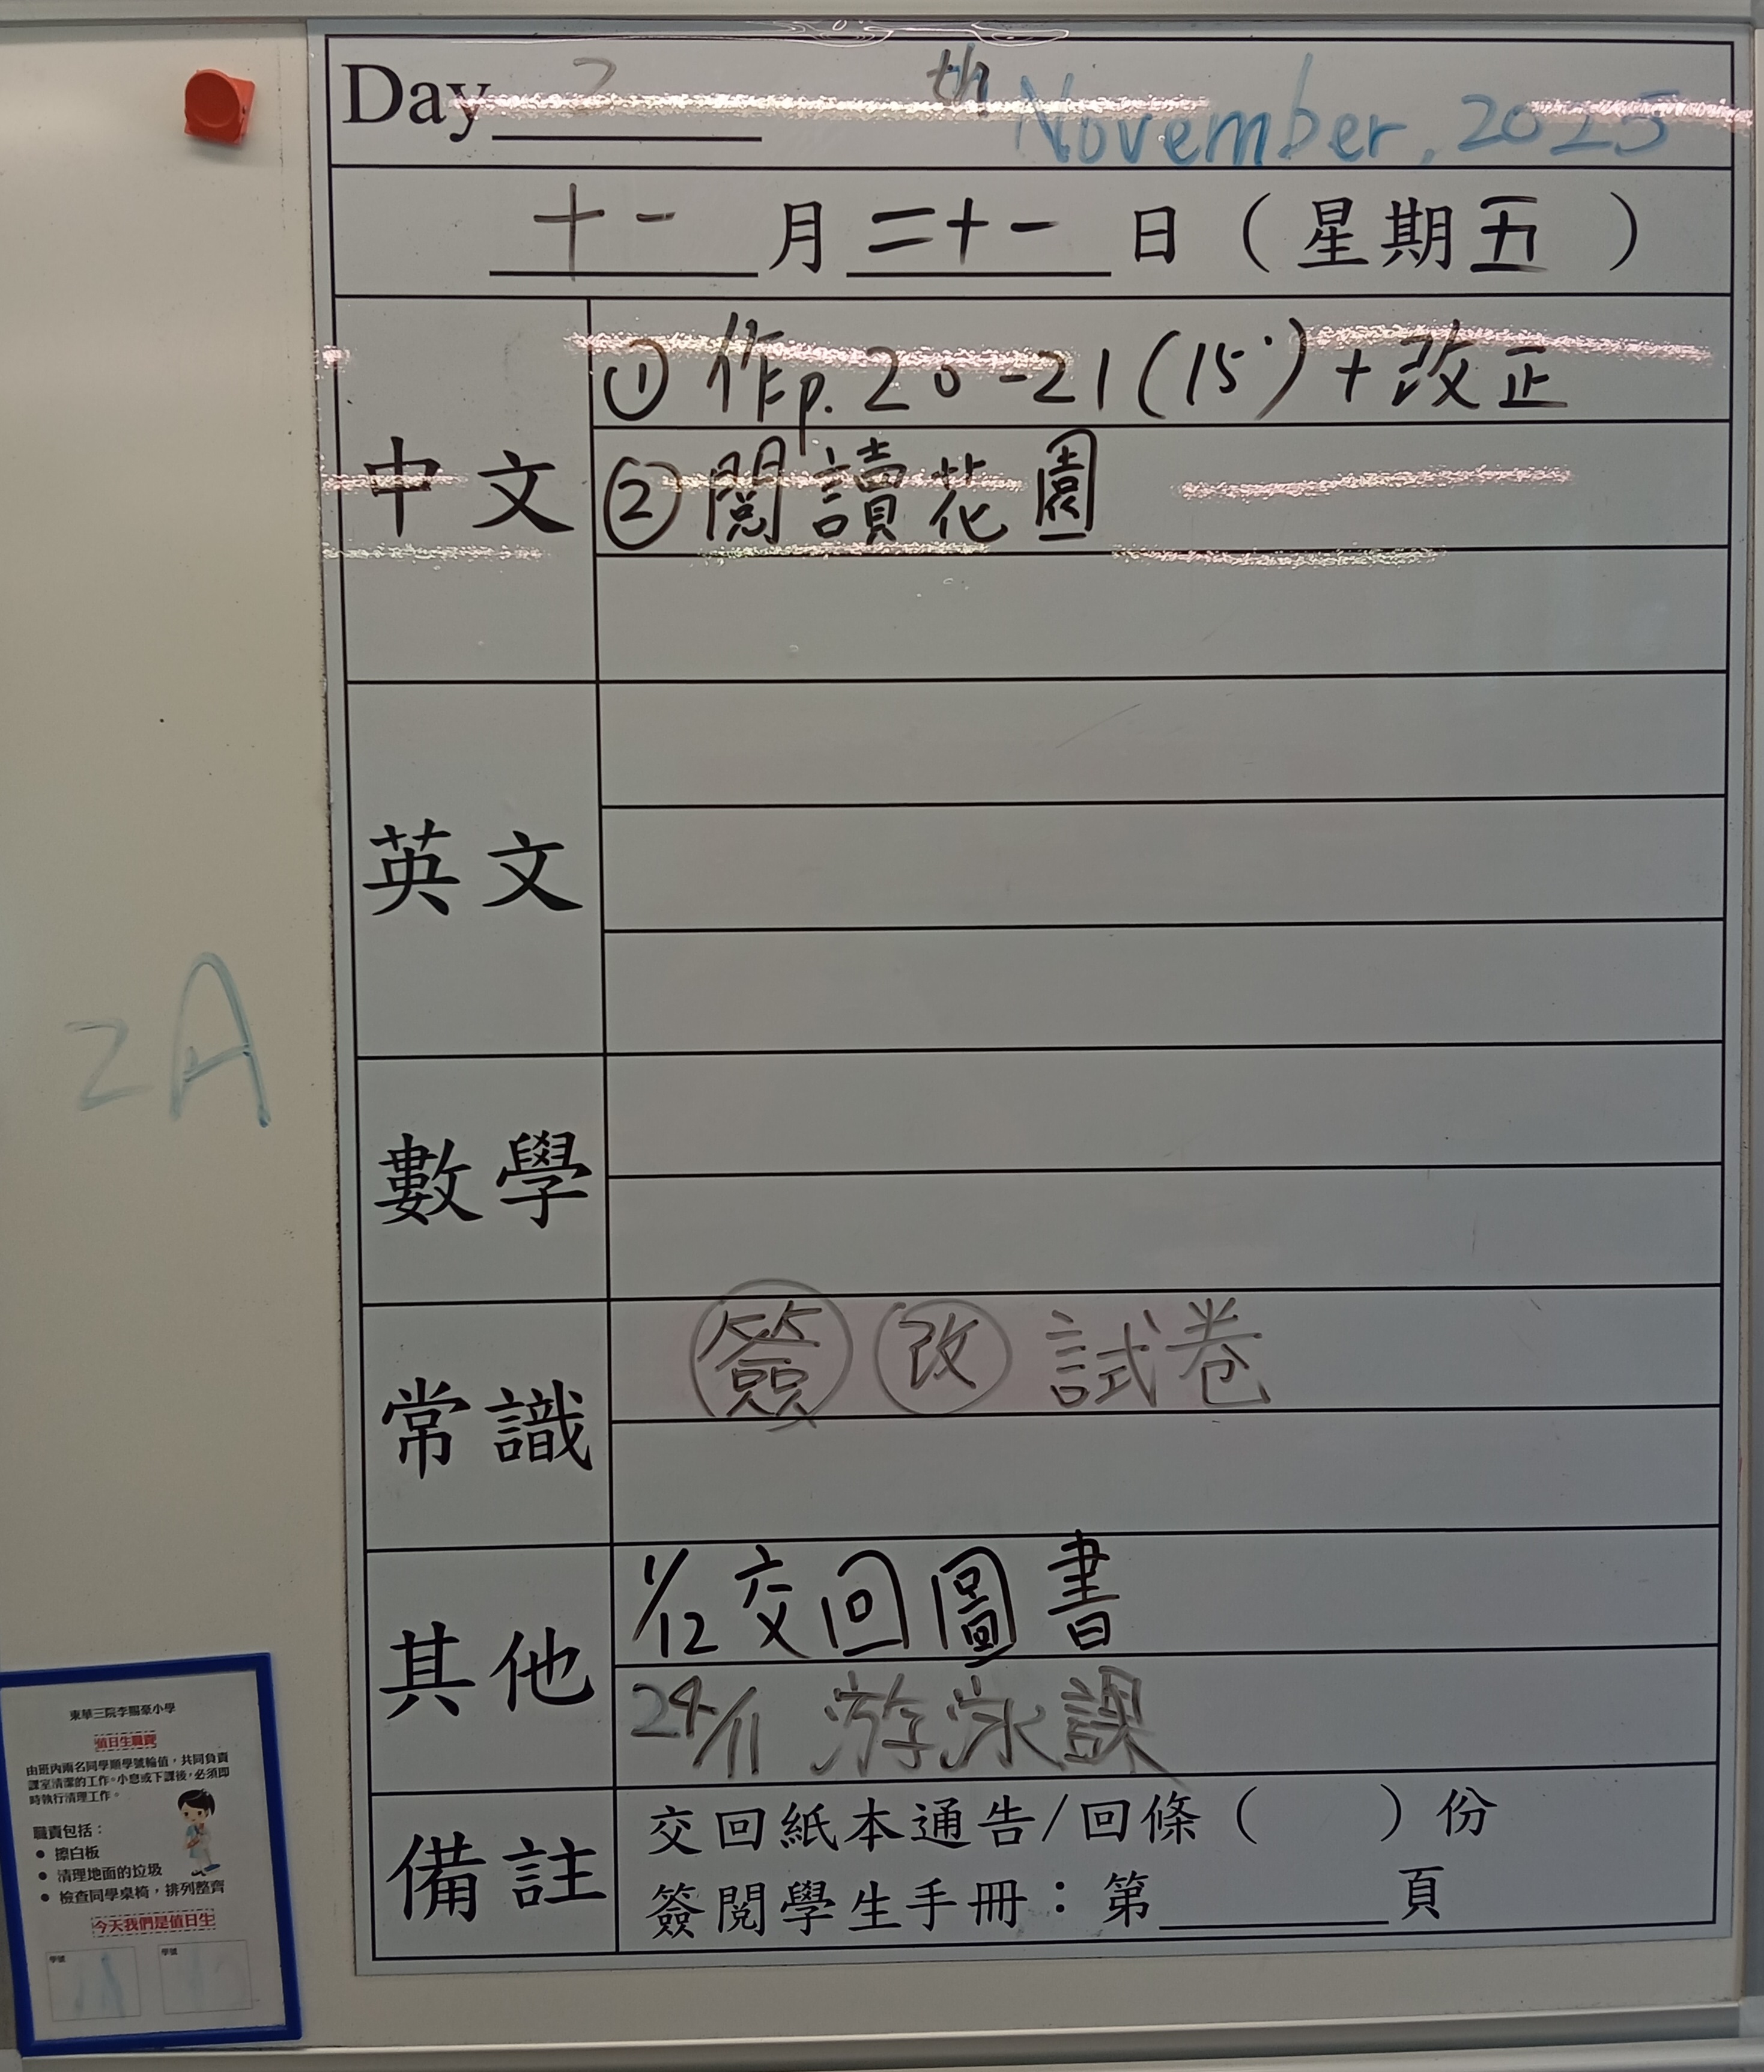 Day 2 th November, 2025
十一月二十一日（星期五）
中文
① 作p.20-21(15')+改正
② 閱讀花園
英文
數學
常識
簽 改 試卷
其他
1/12 交回圖書
24/11 游泳課
備註
交回紙本通告/回條（ ）份
簽閱學生手冊：第 頁
2A
東華三院李賜豪小學
值日生職責
由班內兩名同學順學號輪值，共同負責
課室清潔的工作。小息或下課後，必須即
時執行清理工作。
職責包括：
● 擦白板
● 清理地面的垃圾
● 檢查同學桌椅，排列整齊
今天我們是值日生
學號 學號